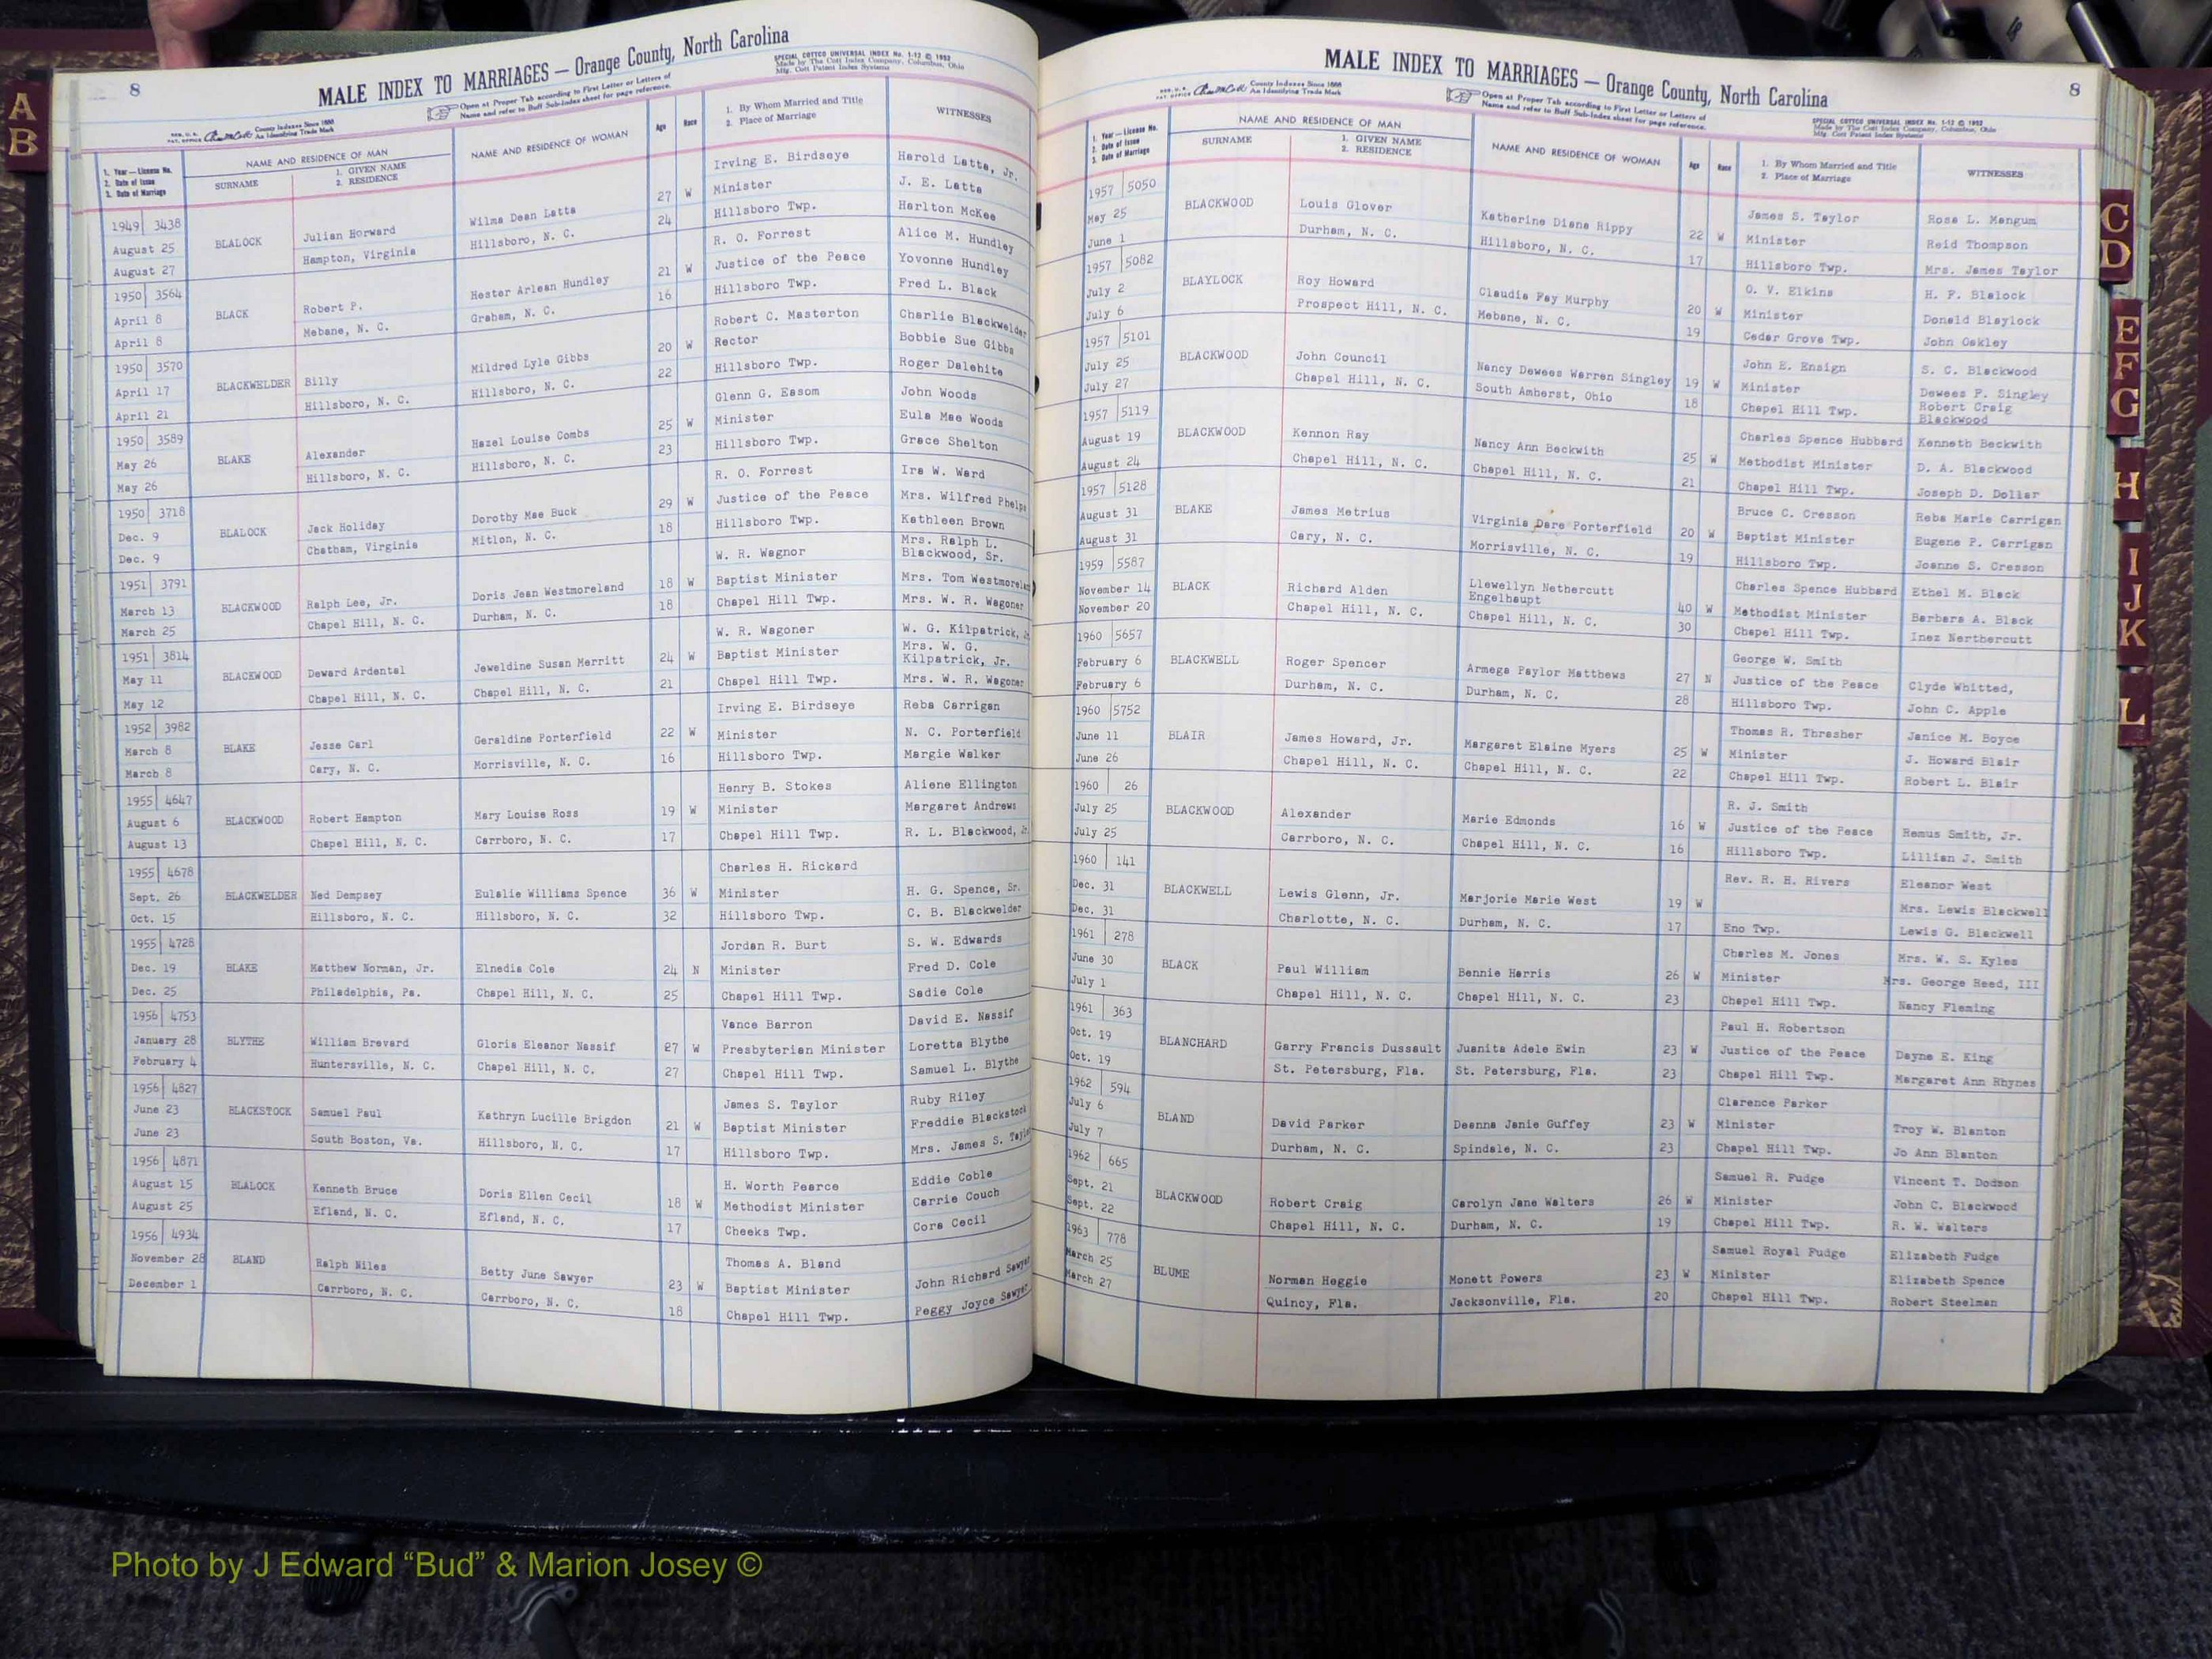 A
B
8
MALE INDEX TO MARRIAGES — Orange County, North Carolina
SPECIAL COTTCO UNIVERSAL INDEX No. 1-12 © 1952
Made by The Cott Index Company, Columbus, Ohio
Mfg. Cott Patent Index Systems
Open at Proper Tab according to First Letter or Letters of
Name and refer to Buff Sub-Index sheet for page reference.
County Indexes Since 1888
An Identifying Trade Mark
1. Year — License No.
2. Date of Issue
3. Date of Marriage
NAME AND RESIDENCE OF MAN
SURNAME
1. GIVEN NAME
2. RESIDENCE
NAME AND RESIDENCE OF WOMAN
Age
Race
1. By Whom Married and Title
2. Place of Marriage
WITNESSES
Irving E. Birdseye Harold Latta, Jr.
1949 3438 Wilma Dean Latta 27 W Minister J. E. Latta
August 25 BLALOCK Julian Horward Hillsboro, N. C. 24 Hillsboro Twp. Harlton McKee
August 27 Hampton, Virginia
R. O. Forrest Alice M. Hundley
1950 3564 Hester Arlean Hundley 21 W Justice of the Peace Yovonne Hundley
April 8 BLACK Robert P. Graham, N. C. 16 Hillsboro Twp. Fred L. Black
April 8 Mebane, N. C.
Robert C. Masterton Charlie Blackwelder
1950 3570 Mildred Lyle Gibbs 20 W Rector Bobbie Sue Gibbs
April 17 BLACKWELDER Billy Hillsboro, N. C. 22 Hillsboro Twp. Roger Dalehite
April 21 Hillsboro, N. C.
Glenn G. Easom John Woods
1950 3589 Hazel Louise Combs 25 W Minister Eula Mae Woods
May 26 BLAKE Alexander Hillsboro, N. C. 23 Hillsboro Twp. Grace Shelton
May 26 Hillsboro, N. C.
R. O. Forrest Ira W. Ward
1950 3718 Dorothy Mae Buck 29 W Justice of the Peace Mrs. Wilfred Phelps
Dec. 9 BLALOCK Jack Holiday Mitlon, N. C. 18 Hillsboro Twp. Kathleen Brown
Dec. 9 Chatham, Virginia
W. R. Wagnor Mrs. Ralph L. Blackwood, Sr.
1951 3791 Doris Jean Westmoreland 18 W Baptist Minister Mrs. Tom
March 13 BLACKWOOD Ralph Lee, Jr. Durham, N. C. 18 Chapel Hill Twp. Mrs. W. R. Wagoner
March 25 Chapel Hill, N. C.
W. R. Wagoner W. G. Kilpatrick,
1951 3814 Jeweldine Susan Merritt 24 W Baptist Minister Mrs. W. G. Kilpatrick, Jr.
May 11 BLACKWOOD Deward Ardental Chapel Hill, N. C. 21 Chapel Hill Twp. Mrs. W. R. Wagoner
May 12 Chapel Hill, N. C.
Irving E. Birdseye Reba Carrigan
1952 3982 Geraldine Porterfield 22 W Minister N. C. Porterfield
March 8 BLAKE Jesse Carl Morrisville, N. C. 16 Hillsboro Twp. Margie Walker
March 8 Cary, N. C.
Henry B. Stokes Aliene Ellington
1955 4647 Mary Louise Ross 19 W Minister Margaret Andrews
August 6 BLACKWOOD Robert Hampton Carrboro, N. C. 17 Chapel Hill Twp. R. L. Blackwood, Jr.
August 13 Chapel Hill, N. C.
Charles H. Rickard
1955 4678 Minister H. G. Spence, Sr.
Sept. 26 BLACKWELDER Ned Dempsey Eulalie Williams Spence 36 W Hillsboro Twp. C. B. Blackwelder
Oct. 15 Hillsboro, N. C. Hillsboro, N. C. 32
Jordan R. Burt S. W. Edwards
1955 4728 Minister Fred D. Cole
Dec. 19 BLAKE Matthew Norman, Jr. Elnedia Cole 24 N Chapel Hill Twp. Sadie Cole
Dec. 25 Philadelphia, Pa. Chapel Hill, N. C. 25
Vance Barron David E. Nassif
1956 4753 Presbyterian Minister Loretta Blythe
January 28 BLYTHE William Brevard Gloria Eleanor Nassif 27 W Chapel Hill Twp. Samuel L. Blythe
February 4 Huntersville, N. C. Chapel Hill, N. C. 27
James S. Taylor Ruby Riley
1956 4827 Baptist Minister Freddie Blackstock
June 23 BLACKSTOCK Samuel Paul Kathryn Lucille Brigdon 21 W Hillsboro Twp. Mrs. James S.
June 23 South Boston, Va. Hillsboro, N. C. 17
H. Worth Pearce Eddie Coble
1956 4871 Methodist Minister Carrie Couch
August 15 BLALOCK Kenneth Bruce Doris Ellen Cecil 18 W Cheeks Twp. Cora Cecil
August 25 Efland, N. C. Efland, N. C. 17
Thomas A. Bland
1956 4934 Baptist Minister John Richard Sawyer
November 28 BLAND Ralph Niles Betty June Sawyer 23 W Chapel Hill Twp. Peggy Joyce Sawyer
December 1 Carrboro, N. C. Carrboro, N. C. 18
MALE INDEX TO MARRIAGES — Orange County, North Carolina
8
County Indexes Since 1888
An Identifying Trade Mark
Open at Proper Tab according to First Letter or Letters of
Name and refer to Buff Sub-Index sheet for page reference.
SPECIAL COTTCO UNIVERSAL INDEX No. 1-12 © 1952
Made by The Cott Index Company, Columbus, Ohio
Mfg. Cott Patent Index Systems
1. Year — License No.
2. Date of Issue
3. Date of Marriage
NAME AND RESIDENCE OF MAN
SURNAME
1. GIVEN NAME
2. RESIDENCE
NAME AND RESIDENCE OF WOMAN
Age
Race
1. By Whom Married and Title
2. Place of Marriage
WITNESSES
1957 5050 James S. Taylor Rosa L. Mangum
May 25 BLACKWOOD Louis Glover Katherine Diane Rippy 22 W Minister Reid Thompson
June 1 Durham, N. C. Hillsboro, N. C. 17 Hillsboro Twp. Mrs. James Taylor
1957 5082 O. V. Elkins H. F. Blalock
July 2 BLAYLOCK Roy Howard Claudia Fay Murphy 20 W Minister Donald Blaylock
July 6 Prospect Hill, N. C. Mebane, N. C. 19 Cedar Grove Twp. John Oakley
1957 5101 John E. Ensign S. C. Blackwood
July 25 BLACKWOOD John Council Nancy Dewees Warren Singley 19 W Minister Dewees P. Singley
July 27 Chapel Hill, N. C. South Amherst, Ohio 18 Chapel Hill Twp. Robert Craig Blackwood
1957 5119 Charles Spence Hubbard Kenneth Beckwith
August 19 BLACKWOOD Kennon Ray Nancy Ann Beckwith 25 W Methodist Minister D. A. Blackwood
August 24 Chapel Hill, N. C. Chapel Hill, N. C. 21 Chapel Hill Twp. Joseph D. Dollar
1957 5128 Bruce C. Cresson Reba Marie Carrigan
August 31 BLAKE James Metrius Virginia Dare Porterfield 20 W Baptist Minister Eugene P. Carrigan
August 31 Cary, N. C. Morrisville, N. C. 19 Hillsboro Twp. Joanne S. Cresson
1959 5587 Charles Spence Hubbard Ethel M. Black
November 14 BLACK Richard Alden Llewellyn Nethercutt Engelhaupt 40 W Methodist Minister Barbara A. Black
November 20 Chapel Hill, N. C. Chapel Hill, N. C. 30 Chapel Hill Twp. Inez Nerthercutt
1960 5657 George W. Smith
February 6 BLACKWELL Roger Spencer Armega Paylor Matthews 27 N Justice of the Peace Clyde Whitted,
February 6 Durham, N. C. Durham, N. C. 28 Hillsboro Twp. John C. Apple
1960 5752 Thomas R. Thrasher Janice M. Boyce
June 11 BLAIR James Howard, Jr. Margaret Elaine Myers 25 W Minister J. Howard Blair
June 26 Chapel Hill, N. C. Chapel Hill, N. C. 22 Chapel Hill Twp. Robert L. Blair
1960 26 R. J. Smith
July 25 BLACKWOOD Alexander Marie Edmonds 16 W Justice of the Peace Remus Smith, Jr.
July 25 Carrboro, N. C. Chapel Hill, N. C. 16 Hillsboro Twp. Lillian J. Smith
1960 141 Rev. R. H. Rivers Eleanor West
Dec. 31 BLACKWELL Lewis Glenn, Jr. Marjorie Marie West 19 W Mrs. Lewis Blackwell
Dec. 31 Charlotte, N. C. Durham, N. C. 17 Eno Twp. Lewis G. Blackwell
1961 278 Charles M. Jones Mrs. W. S. Kyles
June 30 BLACK Paul William Bennie Harris 26 W Minister Mrs. George Reed, III
July 1 Chapel Hill, N. C. Chapel Hill, N. C. 23 Chapel Hill Twp. Nancy Fleming
1961 363 Paul H. Robertson
Oct. 19 BLANCHARD Garry Francis Dussault Juanita Adele Ewin 23 W Justice of the Peace Dayne E. King
Oct. 19 St. Petersburg, Fla. St. Petersburg, Fla. 23 Chapel Hill Twp. Margaret Ann Rhynes
1962 594 Clarence Parker
July 6 BLAND David Parker Deanna Janie Guffey 23 W Minister Troy W. Blanton
July 7 Durham, N. C. Spindale, N. C. 23 Chapel Hill Twp. Jo Ann Blanton
1962 665 Samuel R. Fudge Vincent T. Dodson
Sept. 21 BLACKWOOD Robert Craig Carolyn Jane Walters 26 W Minister John C. Blackwood
Sept. 22 Chapel Hill, N. C. Durham, N. C. 19 Chapel Hill Twp. R. W. Walters
1963 778 Samuel Royal Fudge Elizabeth Fudge
March 25 BLUME Norman Heggie Monett Powers 23 W Minister Elizabeth Spence
March 27 Quincy, Fla. Jacksonville, Fla. 20 Chapel Hill Twp. Robert Steelman
C
D
E
F
G
H
I
J
K
L
Photo by J Edward “Bud” & Marion Josey ©